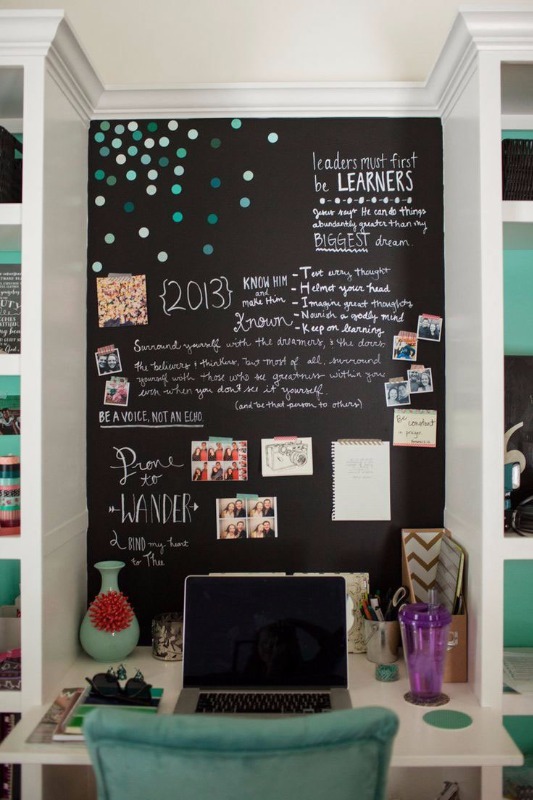 leaders must first
be LEARNERS
Jesus says He can do things
abundantly greater than my
BIGGEST dream.
{2013}
KNOW HIM
and
make Him
Known
- Test every thought
- Helmet your head
- Imagine great thoughts
- Nourish a godly mind
- Keep on learning
Surround yourself with the dreamers, & the doers
the believers & thinkers, but most of all, surround
yourself with those who see greatness within you
even when you don't see it yourself.
(and be that person to others)
BE A VOICE, NOT AN ECHO.
Be constant
in prayer
Prone
to
WANDER
2 BIND my heart
to Thee